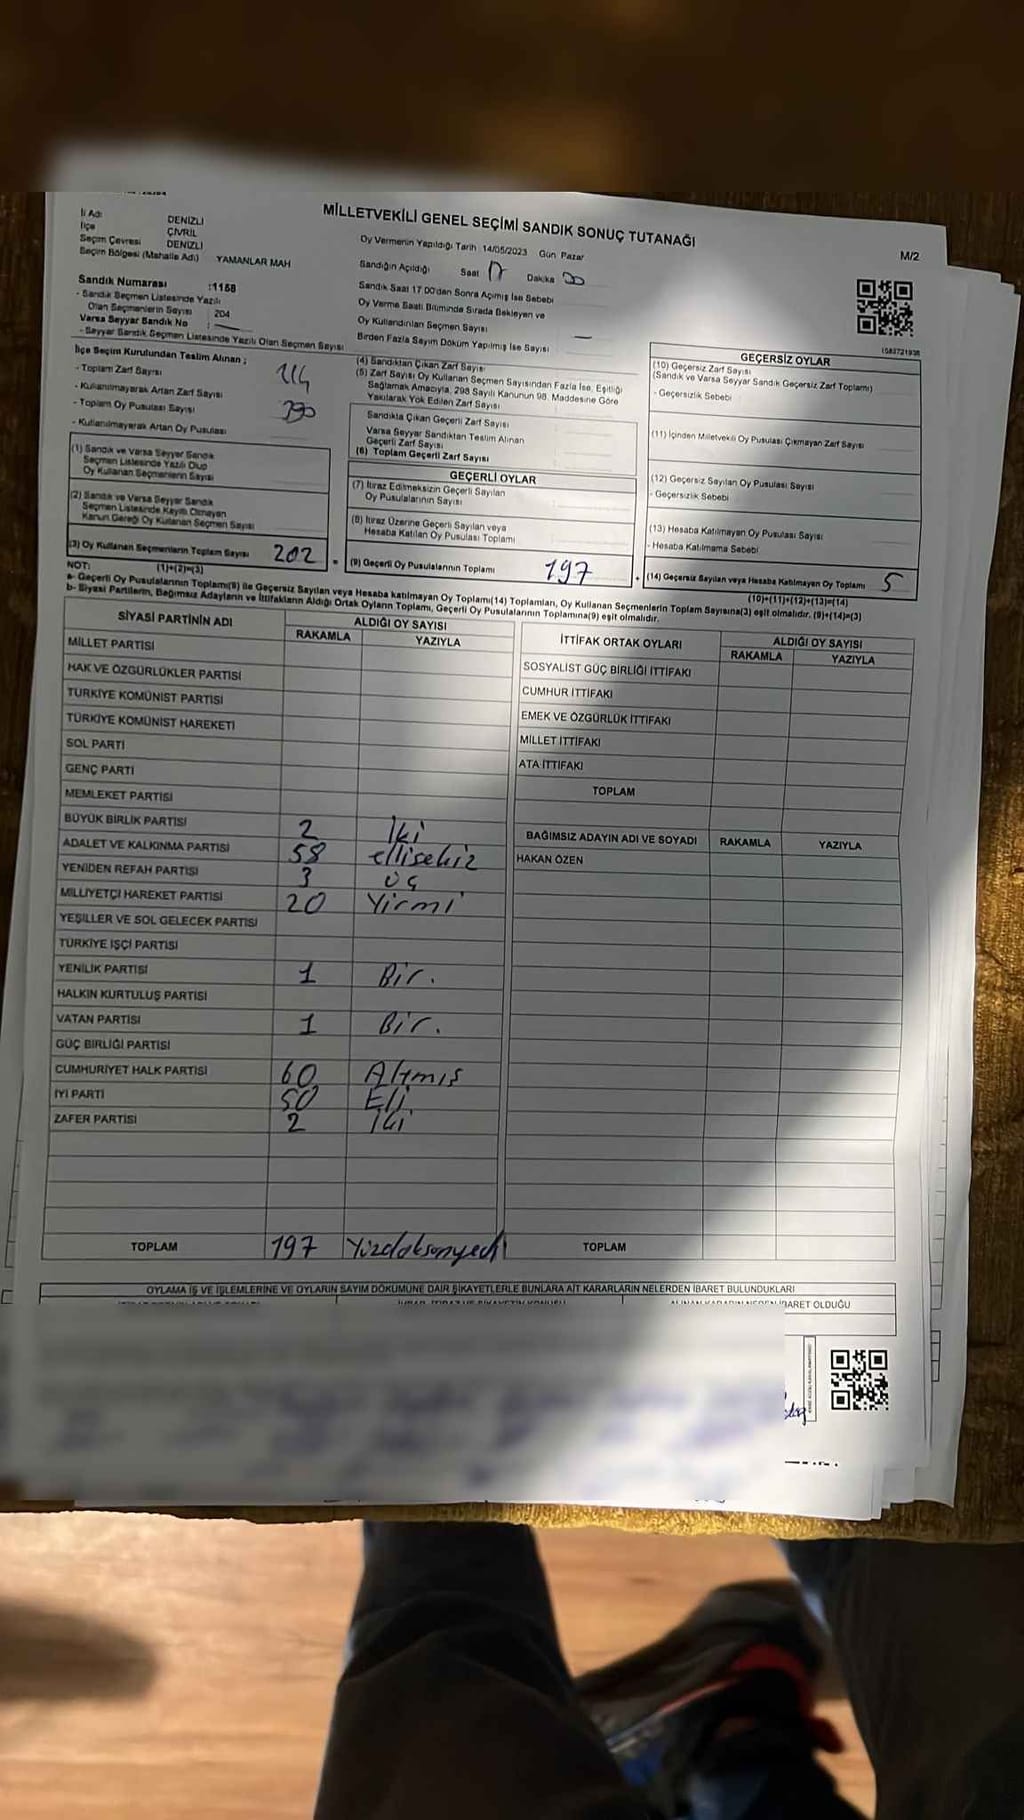 MİLLETVEKİLİ GENEL SEÇİMİ SANDIK SONUÇ TUTANAĞI
M/2
İli Adı DENİZLİ
İlçe ÇİVRİL
Seçim Çevresi DENİZLİ
Seçim Bölgesi (Mahalle Adı) YAMANLAR MAH
Sandık Numarası :1158
- Sandık Seçmen Listesinde Yazılı
Olan Seçmenlerin Sayısı 204
Varsa Seyyar Sandık No :
- Seyyar Sandık Seçmen Listesinde Yazılı Olan Seçmen Sayısı
Oy Vermenin Yapıldığı Tarih 14/05/2023 Gün Pazar
Sandığın Açıldığı Saat 17 Dakika 00
Sandık Saat 17.00'dan Sonra Açılmış İse Sebebi
Oy Verme Saati Bitiminde Sırada Bekleyen ve
Oy Kullandırılan Seçmen Sayısı
Birden Fazla Sayım Döküm Yapılmış İse Sayısı
1583721938
İlçe Seçim Kurulundan Teslim Alınan ;
- Toplam Zarf Sayısı
- Kullanılmayarak Artan Zarf Sayısı
- Toplam Oy Pusulası Sayısı
- Kullanılmayarak Artan Oy Pusulası
(1) Sandık ve Varsa Seyyar Sandık
Seçmen Listesinde Yazılı Olup
Oy Kullanan Seçmenlerin Sayısı
(2) Sandık ve Varsa Seyyar Sandık
Seçmen Listesinde Kayıtlı Olmayan
Kanun Gereği Oy Kullanan Seçmen Sayısı
(3) Oy Kullanan Seçmenlerin Toplam Sayısı 202
(1)+(2)=(3)
(4) Sandıktan Çıkan Zarf Sayısı
(5) Zarf Sayısı Oy Kullanan Seçmen Sayısından Fazla İse, Eşitliği
Sağlamak Amacıyla, 298 Sayılı Kanunun 98. Maddesine Göre
Yakılarak Yok Edilen Zarf Sayısı
Sandıkta Çıkan Geçerli Zarf Sayısı
Varsa Seyyar Sandıktan Teslim Alınan
Geçerli Zarf Sayısı
(6) Toplam Geçerli Zarf Sayısı
GEÇERLİ OYLAR
(7) İtiraz Edilmeksizin Geçerli Sayılan
Oy Pusulalarının Sayısı
(8) İtiraz Üzerine Geçerli Sayılan veya
Hesaba Katılan Oy Pusulası Toplamı
(9) Geçerli Oy Pusulalarının Toplamı 197
GEÇERSİZ OYLAR
(10) Geçersiz Zarf Sayısı
(Sandık ve Varsa Seyyar Sandık Geçersiz Zarf Toplamı)
- Geçersizlik Sebebi
(11) İçinden Milletvekili Oy Pusulası Çıkmayan Zarf Sayısı
(12) Geçersiz Sayılan Oy Pusulası Sayısı
- Geçersizlik Sebebi
(13) Hesaba Katılmayan Oy Pusulası Sayısı
- Hesaba Katılmama Sebebi
(14) Geçersiz Sayılan veya Hesaba Katılmayan Oy Toplamı 5
(10)+(11)+(12)+(13)=(14)
NOT:
a- Geçerli Oy Pusulalarının Toplamı(9) ile Geçersiz Sayılan veya Hesaba katılmayan Oy Toplamı(14) Toplamları, Oy Kullanan Seçmenlerin Toplam Sayısına(3) eşit olmalıdır. (9)+(14)=(3)
b- Siyasi Partilerin, Bağımsız Adayların ve İttifakların Aldığı Ortak Oyların Toplamı, Geçerli Oy Pusulalarının Toplamına(9) eşit olmalıdır.
SİYASİ PARTİNİN ADI ALDIĞI OY SAYISI
RAKAMLA YAZIYLA
MİLLET PARTİSİ
HAK VE ÖZGÜRLÜKLER PARTİSİ
TÜRKİYE KOMÜNİST PARTİSİ
TÜRKİYE KOMÜNİST HAREKETİ
SOL PARTİ
GENÇ PARTİ
MEMLEKET PARTİSİ
BÜYÜK BİRLİK PARTİSİ 2 İki
ADALET VE KALKINMA PARTİSİ 58 ellisekiz
YENİDEN REFAH PARTİSİ 3 üç
MİLLİYETÇİ HAREKET PARTİSİ 20 Yirmi
YEŞİLLER VE SOL GELECEK PARTİSİ
TÜRKİYE İŞÇİ PARTİSİ
YENİLİK PARTİSİ 1 Bir.
HALKIN KURTULUŞ PARTİSİ
VATAN PARTİSİ 1 Bir.
GÜÇ BİRLİĞİ PARTİSİ
CUMHURİYET HALK PARTİSİ 60 Altmış
İYİ PARTİ 50 Eli
ZAFER PARTİSİ 2 İki
TOPLAM 197 Yüzdoksanyedi
İTTİFAK ORTAK OYLARI ALDIĞI OY SAYISI
RAKAMLA YAZIYLA
SOSYALİST GÜÇ BİRLİĞİ İTTİFAKI
CUMHUR İTTİFAKI
EMEK VE ÖZGÜRLÜK İTTİFAKI
MİLLET İTTİFAKI
ATA İTTİFAKI
TOPLAM
BAĞIMSIZ ADAYIN ADI VE SOYADI RAKAMLA YAZIYLA
HAKAN ÖZEN
TOPLAM
OYLAMA İŞ VE İŞLEMLERİNE VE OYLARIN SAYIM DÖKÜMÜNE DAİR ŞİKAYETLERLE BUNLARA AİT KARARLARIN NELERDEN İBARET BULUNDUKLARI
İBARET OLDUĞU